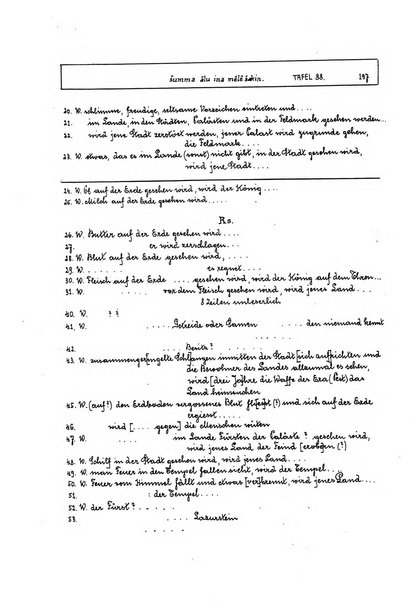 šumma ālu ina mēlê šakin. TAFEL 88. 197
20. W. schlimme, freudige, seltsame Vorzeichen eintreten und....
21. im Lande, in den Städten, Palästen und in der Feldmark gesehen werden...
22. wird jene Stadt zerstört werden, jener Palast wird zugrunde gehen,
die Feldmark....
23. W. etwas, das es im Lande (sonst) nicht gibt, in der Stadt gesehen wird,
wird jene Stadt....
24. W. Öl auf der Erde gesehen wird, wird der König....
25. W. Milch auf der Erde gesehen wird.....
Rs.
26. W. Butter auf der Erde gesehen wird....
27. er wird zerschlagen...
28. W. Blut auf der Erde gesehen wird, ....
29. W. ...... es regnet....
30. W. Fleisch auf der Erde .... gesehen wird, wird der König auf dem Thron...
31. W. ..... vor dem Fleisch gesehen wird, wird jenes Land....
8 Zeilen unleserlich
40. W. ? ?
41. W. .... Getreide oder Samen ..... den niemand kennt
....
42. .... Besitz?
43. W. zusammenge[ringelte Schl]angen inmitten der Stadt [sich aufrichten und
die Bewohner des Landes allzumal es sehen,
wird [drei Ja]hre die Waffe des Era (Pest) das
Land heimsuchen
45. W. (auf?) den Erdboden vergossenes Blut fl[iesst (?) und sich auf der Erde
ergiesst.....
46. wird [.... gegen] die Menschen wüten
47. W. .... im Lande Fürsten der Paläste ? gesehen wird,
wird jenes Land der Feind [erobern (?)
48. W. Schilf in der Stadt gesehen wird, wird jenes Land....
49. W. man Feuer in den Tempel fallen sieht, wird der Tempel...
50. W. Feuer vom Himmel fällt und etwas [ver]brennt, wird jenes Land....
51. : der Tempel....
52. W. der Fürst? ....
53. .... Lazurstein
....